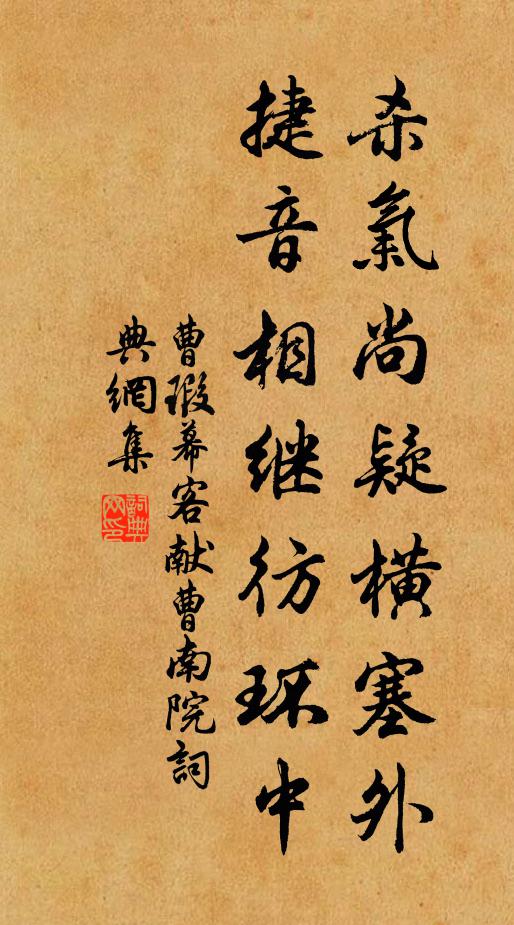 杀氣尚疑橫塞外
捷音相继彷环中
曹瑕幕客献曹南院詞
典網集
詞典
网印